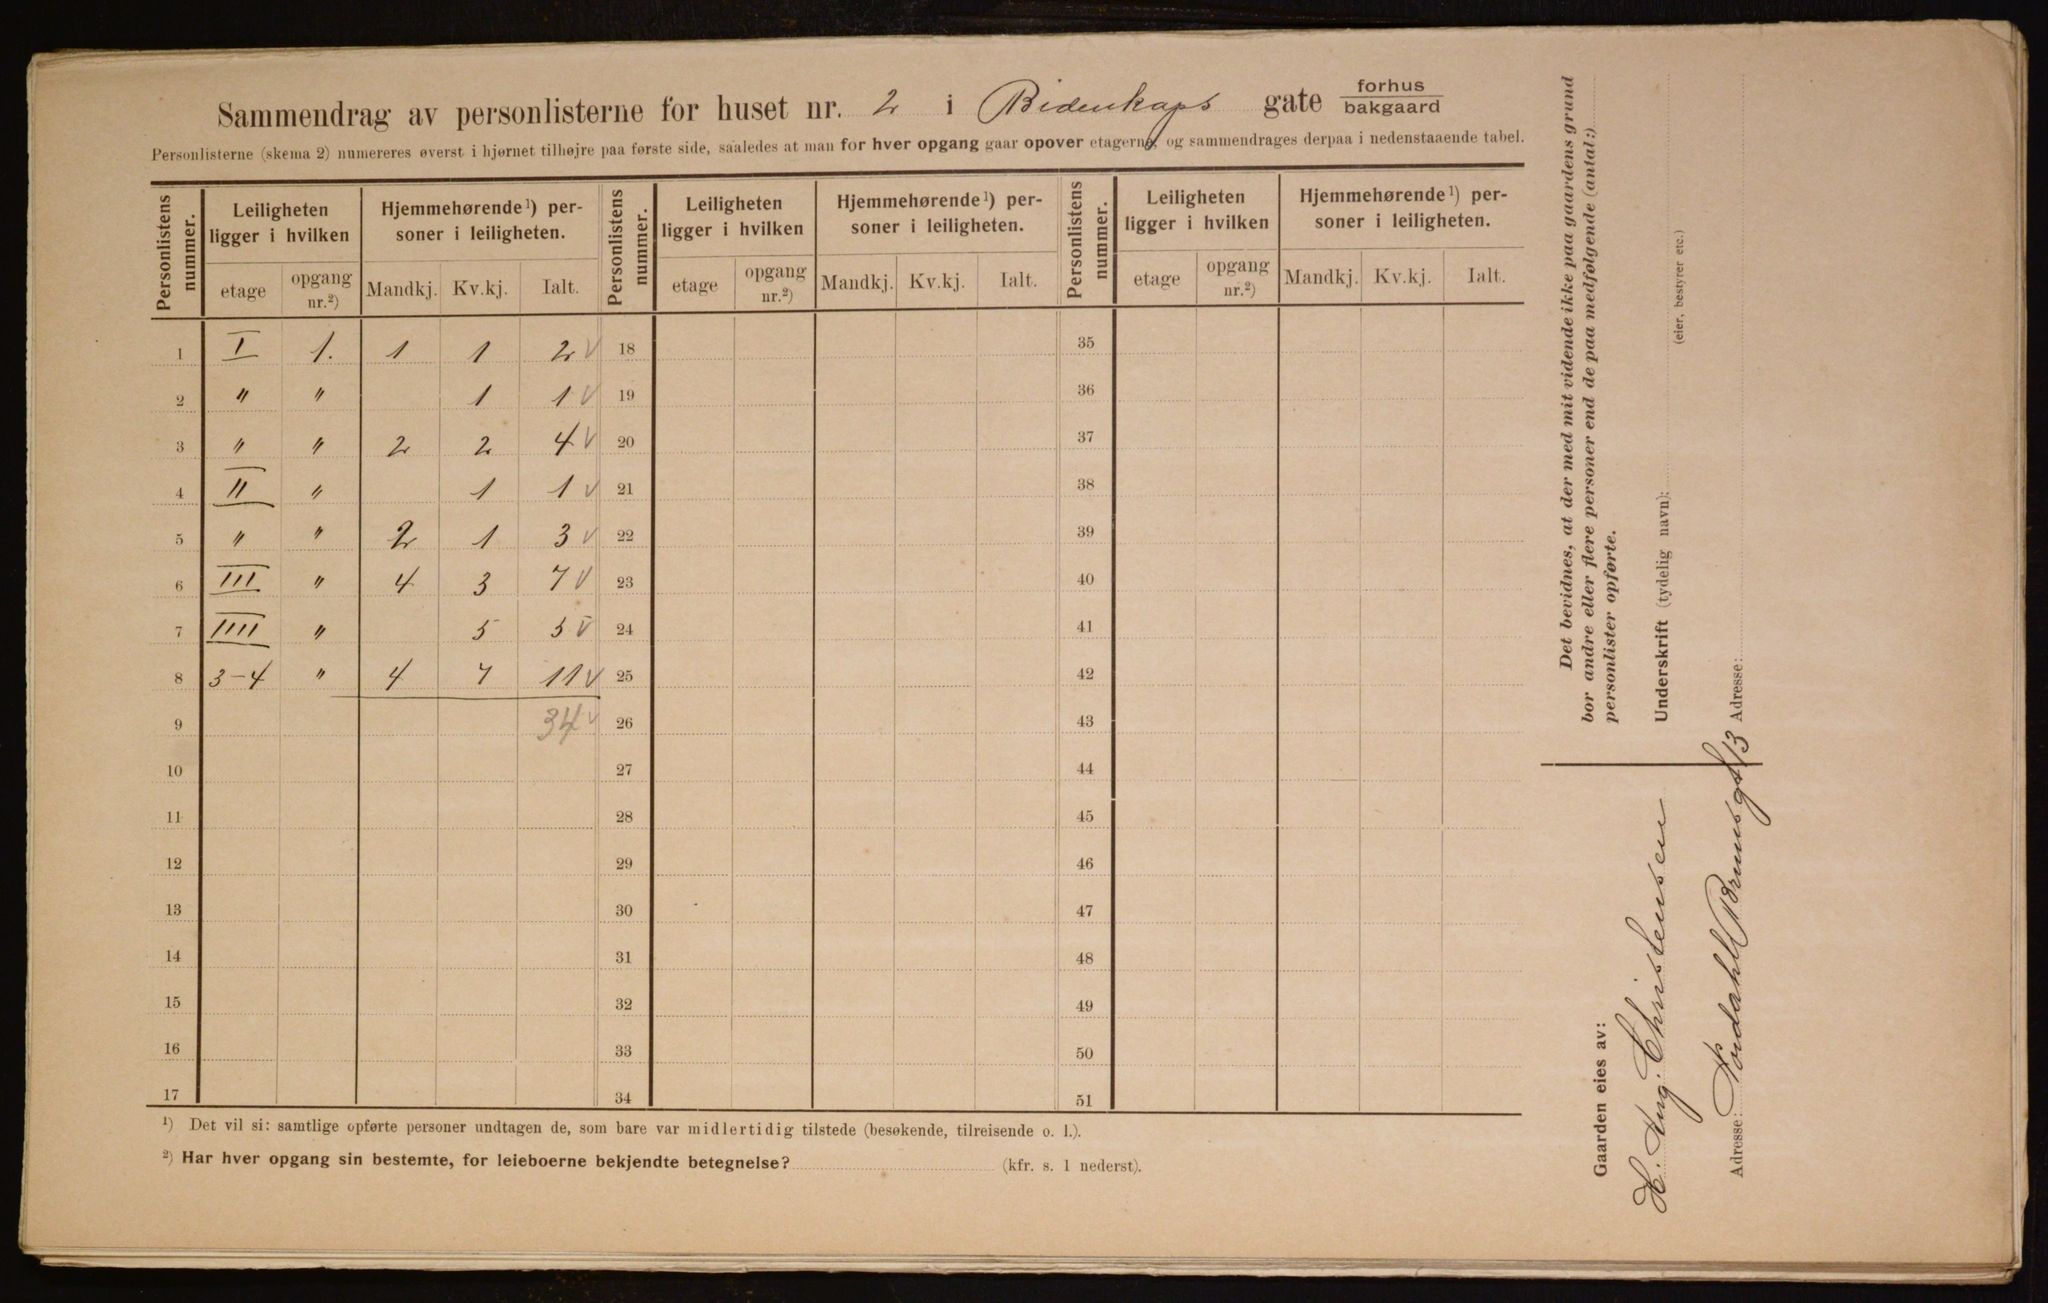 Sammendrag av personlisterne for huset nr. 2 i Bidenkaps gate forhus
bakgaard
Personlisterne (skema 2) numereres øverst i hjørnet tilhøjre paa første side, saaledes at man for hver opgang gaar opover etagerne, og sammendrages derpaa i nedenstaaende tabel.
Personlistens nummer. Leiligheten ligger i hvilken Hjemmehørende¹) personer i leiligheten. Personlistens nummer. Leiligheten ligger i hvilken Hjemmehørende¹) personer i leiligheten. Personlistens nummer. Leiligheten ligger i hvilken Hjemmehørende¹) personer i leiligheten.
etage opgang nr.²) Mandkj. Kv.kj. Ialt. etage opgang nr.²) Mandkj. Kv.kj. Ialt. etage opgang nr.²) Mandkj. Kv.kj. Ialt.
1 I 1. 1 1 2 V 18 35
2 " " 1 1 V 19 36
3 " " 2 2 4 V 20 37
4 II " 1 1 V 21 38
5 " " 2 1 3 V 22 39
6 III " 4 3 7 V 23 40
7 IIII " 5 5 V 24 41
8 3-4 " 4 7 11 V 25 42
9 34 V 26 43
10 27 44
11 28 45
12 29 46
13 30 47
14 31 48
15 32 49
16 33 50
17 34 51
¹) Det vil si: samtlige opførte personer undtagen de, som bare var midlertidig tilstede (besøkende, tilreisende o. l.).
²) Har hver opgang sin bestemte, for leieboerne bekjendte betegnelse? (kfr. s. 1 nederst).
Det bevidnes, at der med mit vidende ikke paa gaardens grund
bor andre eller flere personer end de paa medfølgende (antal:)
personlister opførte.
Underskrift (tydelig navn):
(eier, bestyrer etc.)
Adresse:
Gaarden eies av:
H. Aug. Christensen
Adresse: Nordahl Brunsgt 13